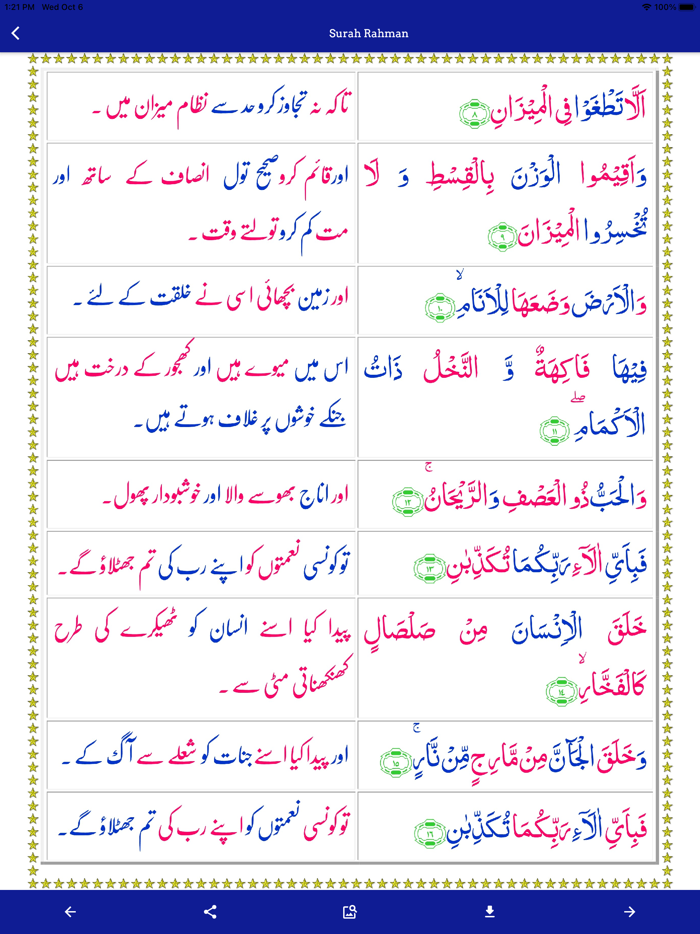 1:21 PM Wed Oct 6 100%
Surah Rahman
اَلَّا تَطْغَوْا فِی الْمِیْزَانِ ۸
تاکہ نہ تجاوز کرو حد سے نظام میزان میں ۔
وَاَقِیْمُوا الْوَزْنَ بِالْقِسْطِ وَ لَا
تُخْسِرُوا الْمِیْزَانَ ۹
اور قائم کرو صحیح تول انصاف کے ساتھ اور
مت کم کرو تولتے وقت ۔
وَالْاَرْضَ وَضَعَهَا لِلْاَنَامِ ۙ ۱۰
اور زمین بچھائی اسی نے خلقت کے لئے ۔
فِیْهَا فَاكِهَةٌ وَّ النَّخْلُ ذَاتُ
الْاَكْمَامِ ۖ ۱۱
اس میں میوے ہیں اور کھجور کے درخت ہیں
جنکے خوشوں پر غلاف ہوتے ہیں۔
وَالْحَبُّ ذُو الْعَصْفِ وَالرَّیْحَانُ ۚ ۱۲
اور اناج بھوسے والا اور خوشبودار پھول۔
فَبِاَیِّ اٰلَآءِ رَبِّكُمَا تُكَذِّبٰنِ ۱۳
تو کونسی نعمتوں کو اپنے رب کی تم جھٹلاؤ گے۔
خَلَقَ الْاِنْسَانَ مِنْ صَلْصَالٍ
كَالْفَخَّارِ ۙ ۱٤
پیدا کیا اسنے انسان کو ٹھیکرے کی طرح
کھنکھناتی مٹی سے ۔
وَخَلَقَ الْجَآنَّ مِنْ مَّارِجٍ مِّنْ نَّارٍ ۚ ۱۵
اور پیدا کیا اسنے جنات کو شعلے سے آگ کے ۔
فَبِاَیِّ اٰلَآءِ رَبِّكُمَا تُكَذِّبٰنِ ۱٦
تو کونسی نعمتوں کو اپنے رب کی تم جھٹلاؤ گے۔